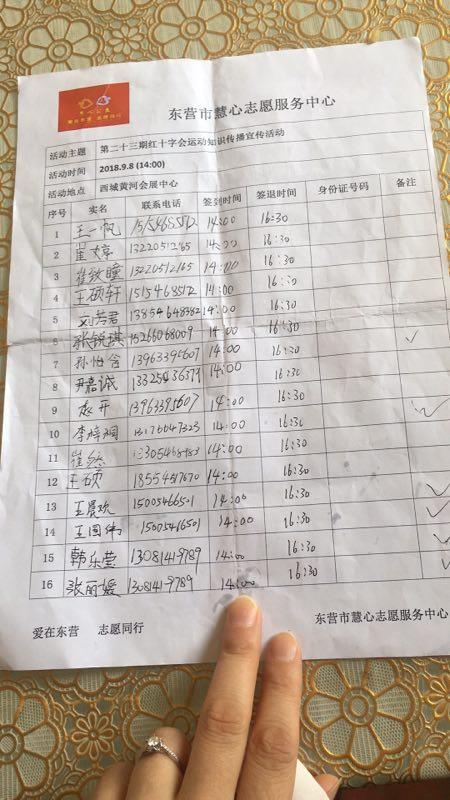 东营市慧心志愿服务中心
活动主题 第二十三期红十字会运动知识传播宣传活动
活动时间 2018.9.8 (14:00)
活动地点 西城黄河会展中心
序号 实名 联系电话 签到时间 签退时间 身份证号码 备注
1 王一帆 14:00 16:30
2 崔婷 13220512165 14:00 16:30
3 崔致瞳 13220512165 14:00 16:30
4 王硕轩 15154685172 14:00 16:30
5 刘芳君 13854648382 14:00 16:30
6 张锐琪 15266068009 14:00 16:30 ✓
7 孙怡含 14:00 16:30
8 尹嘉诚 14:00 16:30
9 14:00 16:30 ✓
10 14:00 16:30
11 崔然 14:00 16:30
12 王硕 18554517670 14:00 16:30
13 王晨欢 15005466501 14:00 16:30 ✓
14 王国伟 15005466501 14:00 16:30 ✓
15 韩乐莹 13081419789 14:00 16:30 ✓
16 张丽媛 13081419789 14:00 16:30
爱在东营 志愿同行 东营市慧心志愿服务中心